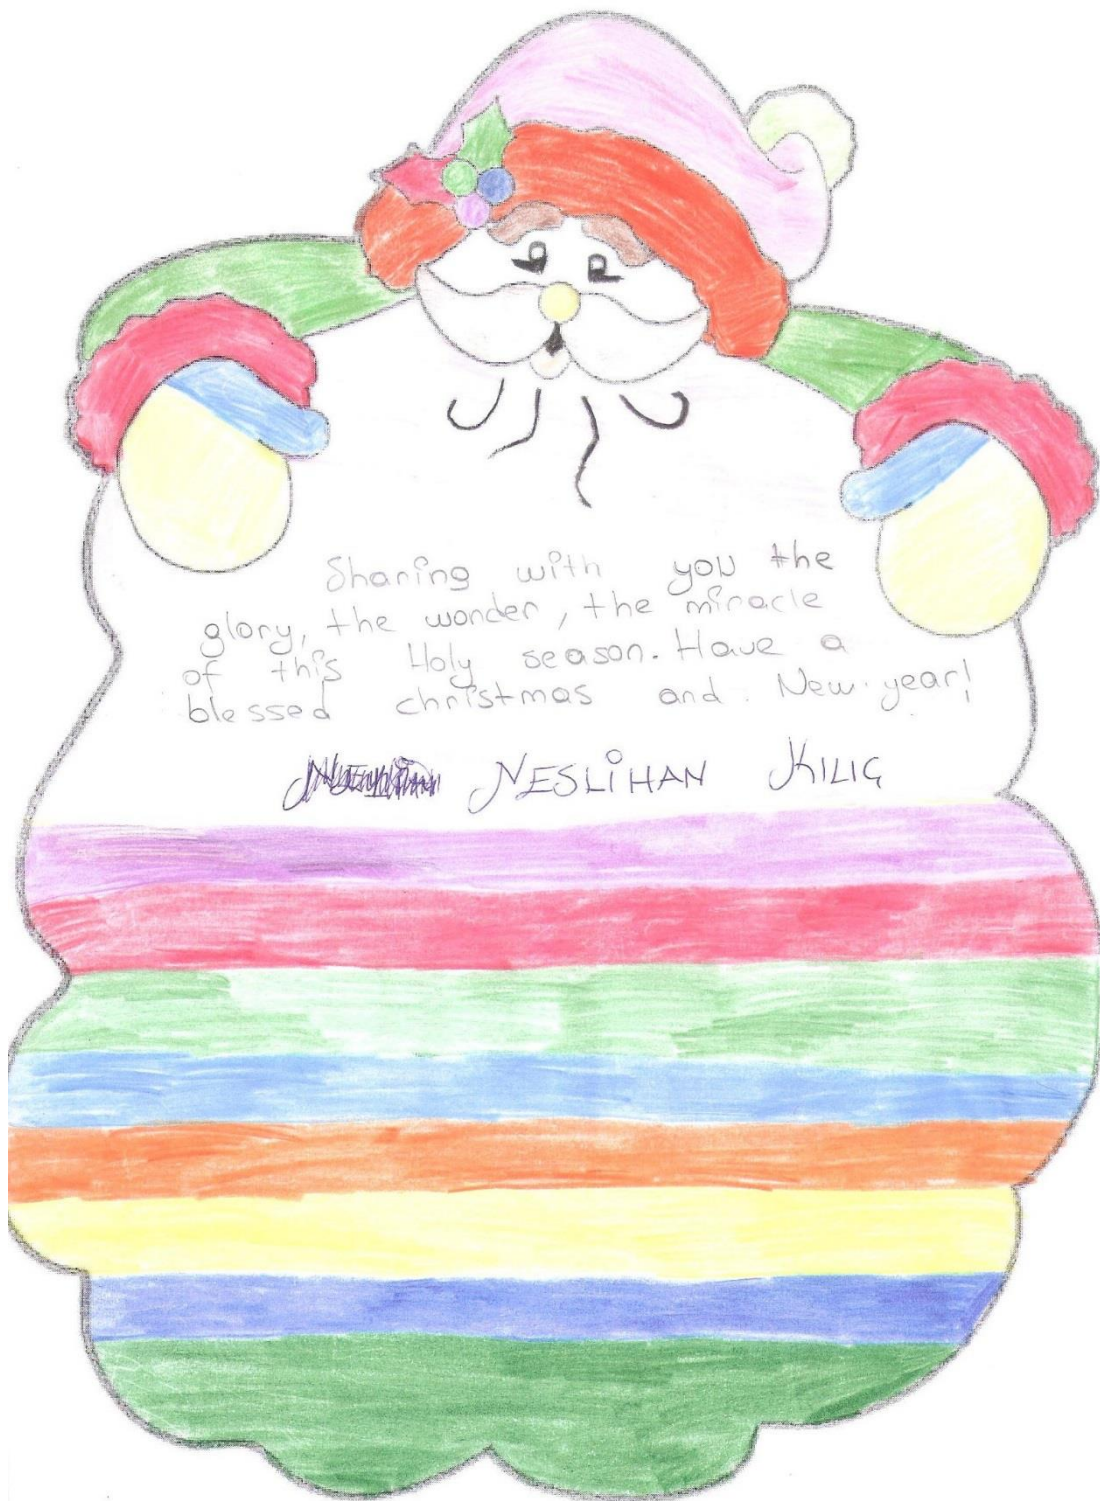 Sharing with you the
glory, the wonder, the miracle
of this Holy season. Have a
blessed christmas and New year!
NESLİHAN KILIÇ